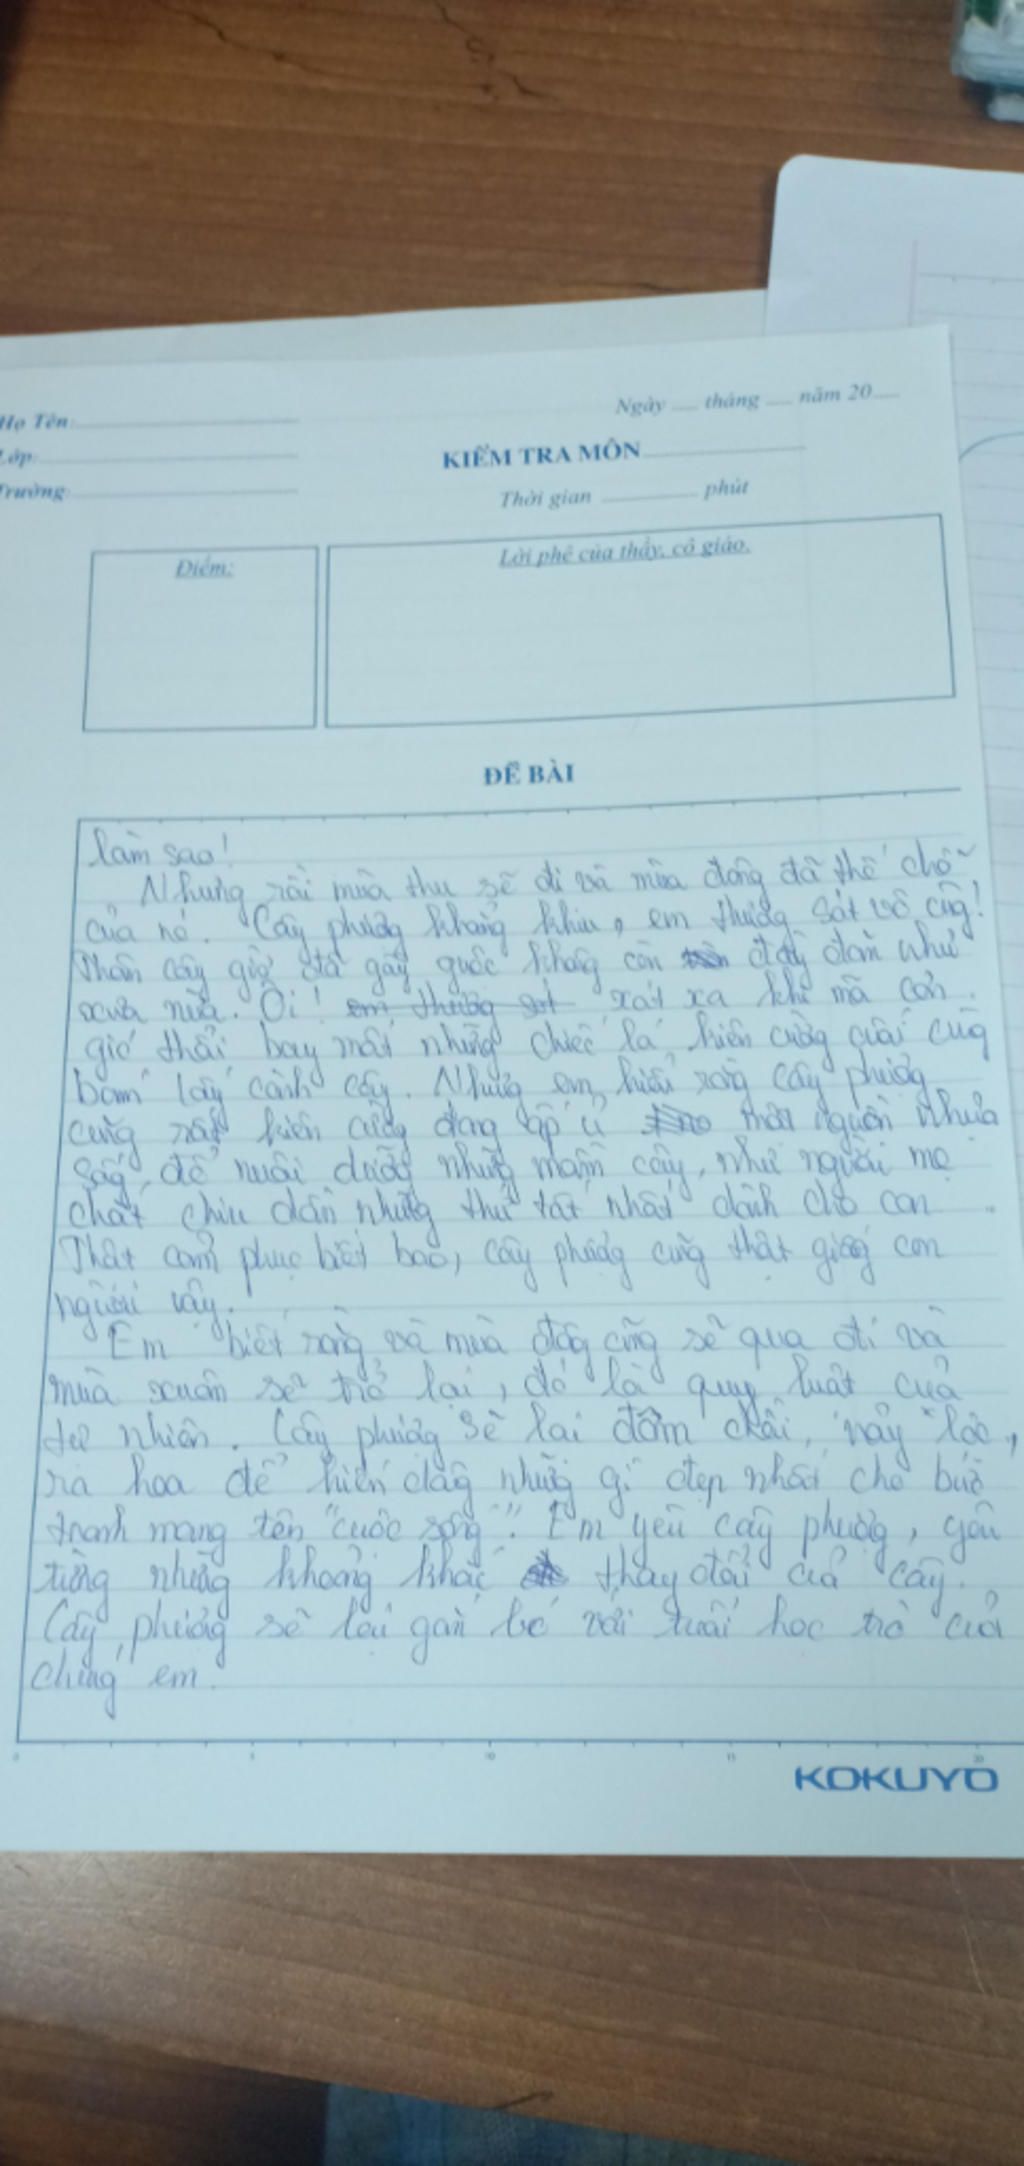 Họ Tên:
Ngày tháng năm 20
Lớp:
KIỂM TRA MÔN
Trường:
Thời gian phút
Điểm:
Lời phê của thầy, cô giáo.
ĐỀ BÀI
làm sao!
Nhưng rồi mùa thu sẽ đi và mùa đông đã thế chỗ
của nó. Cây phượng khẳng khiu, em thương sót vô cùng!
Thân cây giờ đã gầy guộc không còn đẫy đàn như
xưa nữa. Ôi! em thương sót xót xa khi mà cơn
gió thổi bay mất những chiếc lá kiên cường cuối cùng
bám lấy cành cây. Nhưng em hiểu rằng cây phượng
cũng rất kiên cường đang ấp ủ một nguồn nhựa
sống, để nuôi dưỡng những mầm cây, như người mẹ
chắt chiu dần những thứ tốt nhất dành cho con.
Thật cảm phục biết bao, cây phượng cũng thật giống con
người vậy.
Em biết rằng và mùa đông cũng sẽ qua đi và
mùa xuân sẽ trở lại, đó là quy luật của
tự nhiên. Cây phượng sẽ lại đâm chồi, nảy lộc,
ra hoa để hiến dâng những gì đẹp nhất cho bức
tranh mang tên "cuộc sống". Em yêu cây phượng, yêu
từng những khoảng khắc thay đổi của cây.
Cây phượng sẽ lại gắn bó với tuổi học trò của
chúng em.
0 5 10 15 20
KOKUYO